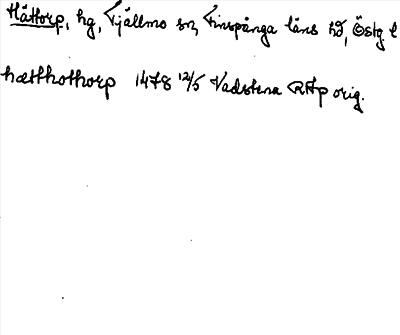 Håttorp, hg, Tjällmo sn, Finspånga läns hd, Östg. l
hætthothorp 1478 12/5 Vadstena RAp orig.